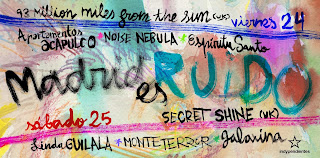 93 Million miles from the sun (UK) viernes 24
Apartamentos ACAPULCO * NOISE NEBULA * Espíritu Santo
Madrid es RUIDO
sábado 25 SECRET SHINE (UK)
Linda GUILALA * MONTETERROR * Jalavina
indypendientes